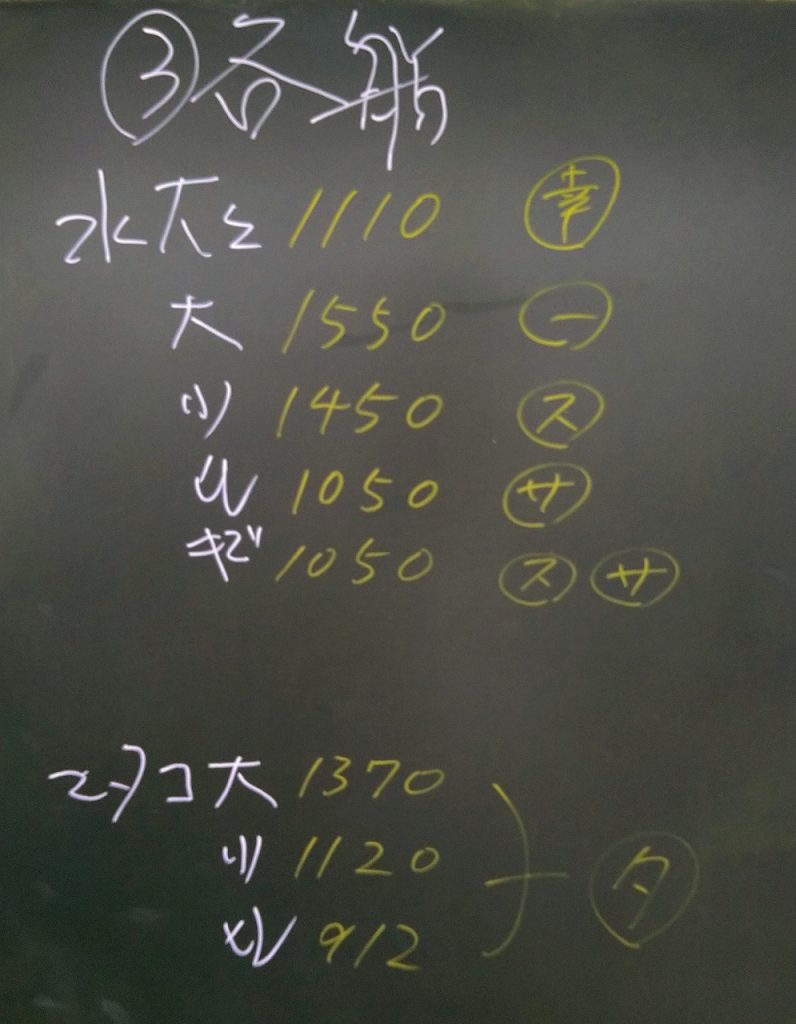 ③各船
水大 1110 ㊕
大 1550 ㊀
小 1450 ㋜
1050 ㋚
1050 ㋜ ㋚
タコ大 1370
小 1120 ㋟
912